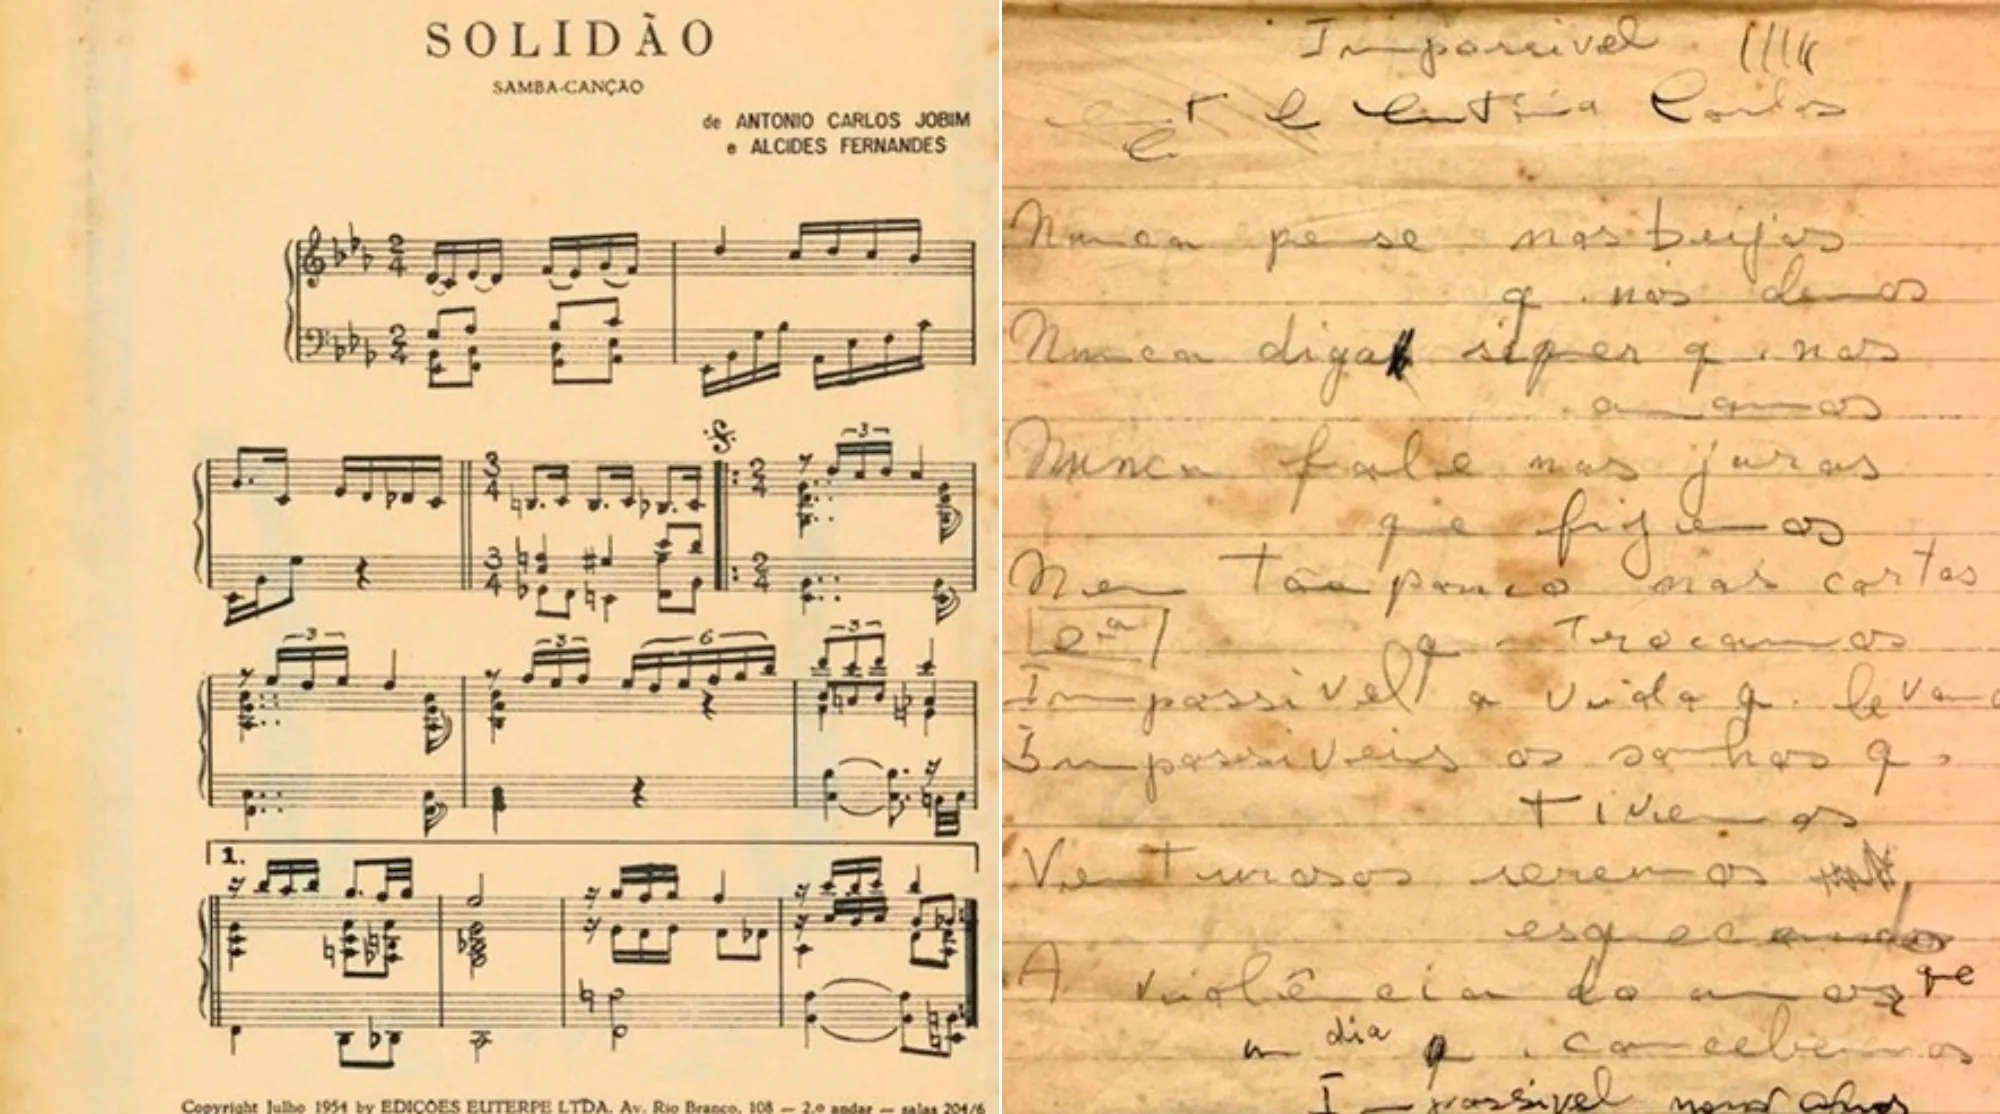 SOLIDÃO
SAMBA-CANÇÃO
de ANTONIO CARLOS JOBIM
e ALCIDES FERNANDES
2
4
2
4
3
4
2
4
3
3
4
2
4
3
3
6
3
1.
Copyright Julho 1954 by EDIÇÕES EUTERPE LTDA. Av. Rio Branco, 108 — 2.º andar — salas 204/6
Impossivel
Carlos
Nunca pense nos beijos
q. nós demos
Nunca diga siquer q. nos
amamos
Nunca fale nas juras
que fizemos
Nem tão pouco nas cartas
q trocamos
Impossivel a vida q. levamos
Impossiveis os sonhos q.
tivemos
Venturosos seremos
A violência do amor que
um dia q. concebemos
Impossivel